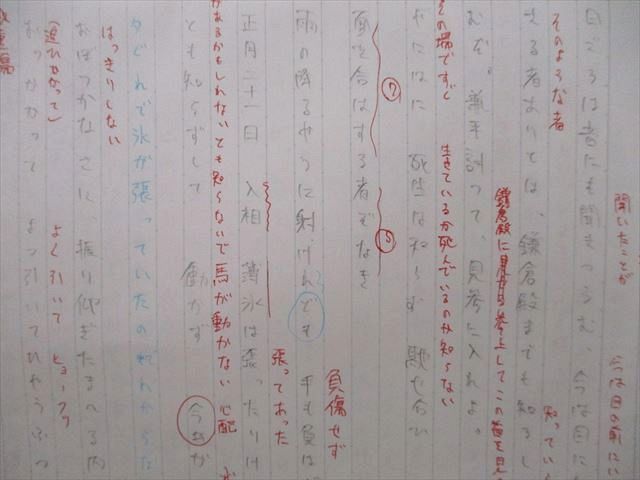 聞いたことが
今は目の前にい
日ごろは者にも聞きつらむ、今は目に
そのような者
知ってい
さる者ありとは、鎌倉殿までも知ろし
鎌倉殿に
むぞ。兼平討って、見参に入れよ。
その場ですぐ
生きているか死んでいるのか知らない
やにはに 死生は知らず 馳せ合ひ
⑦
⑤
面を合はする者ぞなき
負傷せず
雨の降るやうに射けれども 手も負は
張ってあった
正月二十一日 入相 薄氷は張ったりけ
があるかもしれないとも知らないで馬が動かない 心配
とも知らずして 動かず 今井が
夕ぐれで氷が張っていたの
はっきりしない
おぼつかなさに 振り仰ぎたまへる内
(追ひかかって) よく引いて ヒョーフッ
おっかかって よっ引いてひやうふつ
重傷